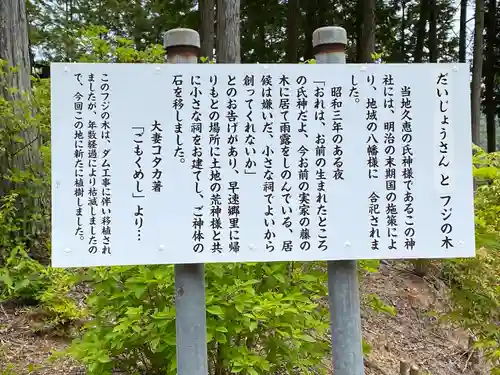 だいじょうさん と フジの木
当地久恵の氏神様であるこの神
社には、明治の末期国の施策によ
り、地域の八幡様に 合祀されま
した。
昭和三年のある夜
「おれは、お前の生まれたところ
の氏神だよ、今お前の実家の藤の
木に居て雨露をしのんでいる、居
候は嫌いだ、小さな祠でよいから
創ってくれないか」
とのお告げがあり、早速郷里に帰
りもとの場所に土地の荒神様と共
に小さな祠をお建てし、ご神体の
石を移しました。
大妻コタカ著
「ごもくめし」より…
このフジの木は、ダム工事に伴い移植され
ましたが、年数経過により枯滅しましたの
で、今回この地に新たに植樹しました。